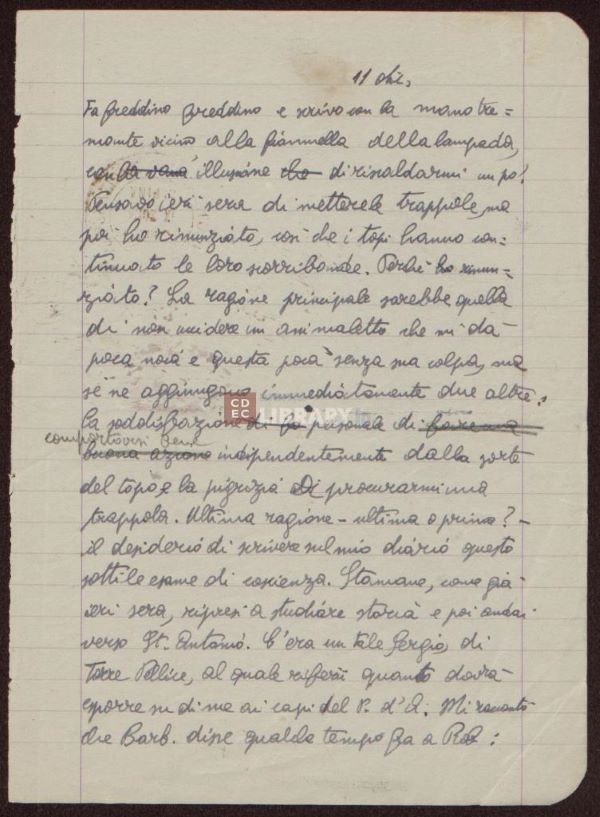 11 dic.
Fa freddino freddino e scrivo con la mano tre-
mante vicino alla fiammella della lampada,
con la vana illusione che di riscaldarmi un po'.
Pensavo ieri sera di mettere le trappole, ma
poi ho rinunziato, così che i topi hanno con-
tinuato le loro scorribande. Perché ho rinun-
ziato? La ragione principale sarebbe quella
di non uccidere un animaletto che mi dà
poca noia e questa poca senza sua colpa, ma
se ne aggiungono immediatamente due altre:
CDEC LIBRARY
la soddisfazione di personale di
comportarsi bene
buona azione indipendentemente dalla sorte
del topo, e la pigrizia di procurarmi una
trappola. Ultima ragione - ultima o prima? -
il desiderio di scrivere sul mio diario questo
sottile esame di coscienza. Stamane, come già
ieri sera, ripresi a studiare storia e poi andai
verso St. Antonio. C'era un tale Sergio, di
Torre Pellice, al quale riferii quanto dovrà
esporre su di me ai capi del P. d'A. Mi raccontò
che Barb. disse qualche tempo fa a Rob :